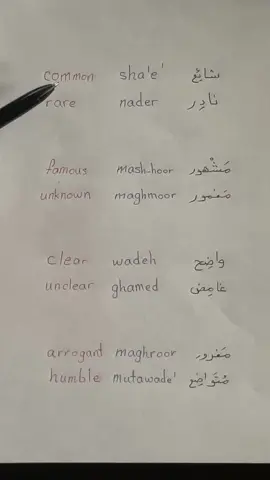 common sha'e' شايع
rare nader نادِر
famous mash-hoor مَشْهور
unknown maghmoor مَغمور
clear wadeh واضِح
unclear ghamed غامِض
arrogant maghroor مَغرور
humble mutawade' مُتَواضِع